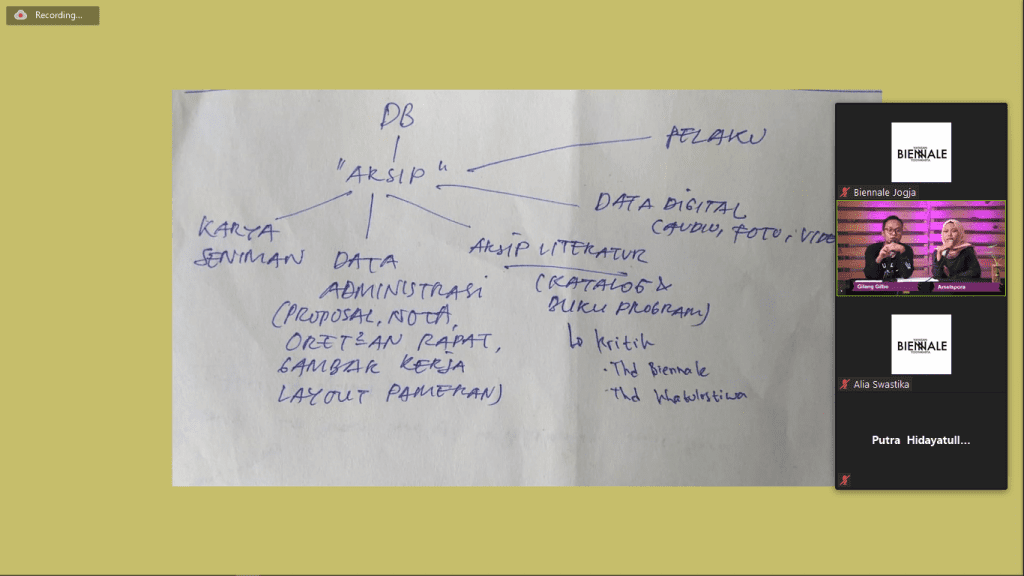 Recording...
DB
"ARSIP"
PELAKU
KARYA
SENIMAN
DATA
ADMINISTRASI
(PROPOSAL, NOTA,
ORET²AN RAPAT,
GAMBAR KERJA
LAYOUT PAMERAN)
ARSIP LITERATUR
(KATALOG &
BUKU PROGRAM)
kritik
• Thd Biennale
• Thd Khatulistiwa
DATA DIGITAL
(AUDIO, FOTO, VIDE
BIENNALE
Biennale Jogja
Gilang Gilbo
Amelspora
BIENNALE
Alia Swastika
Putra Hidayatull...